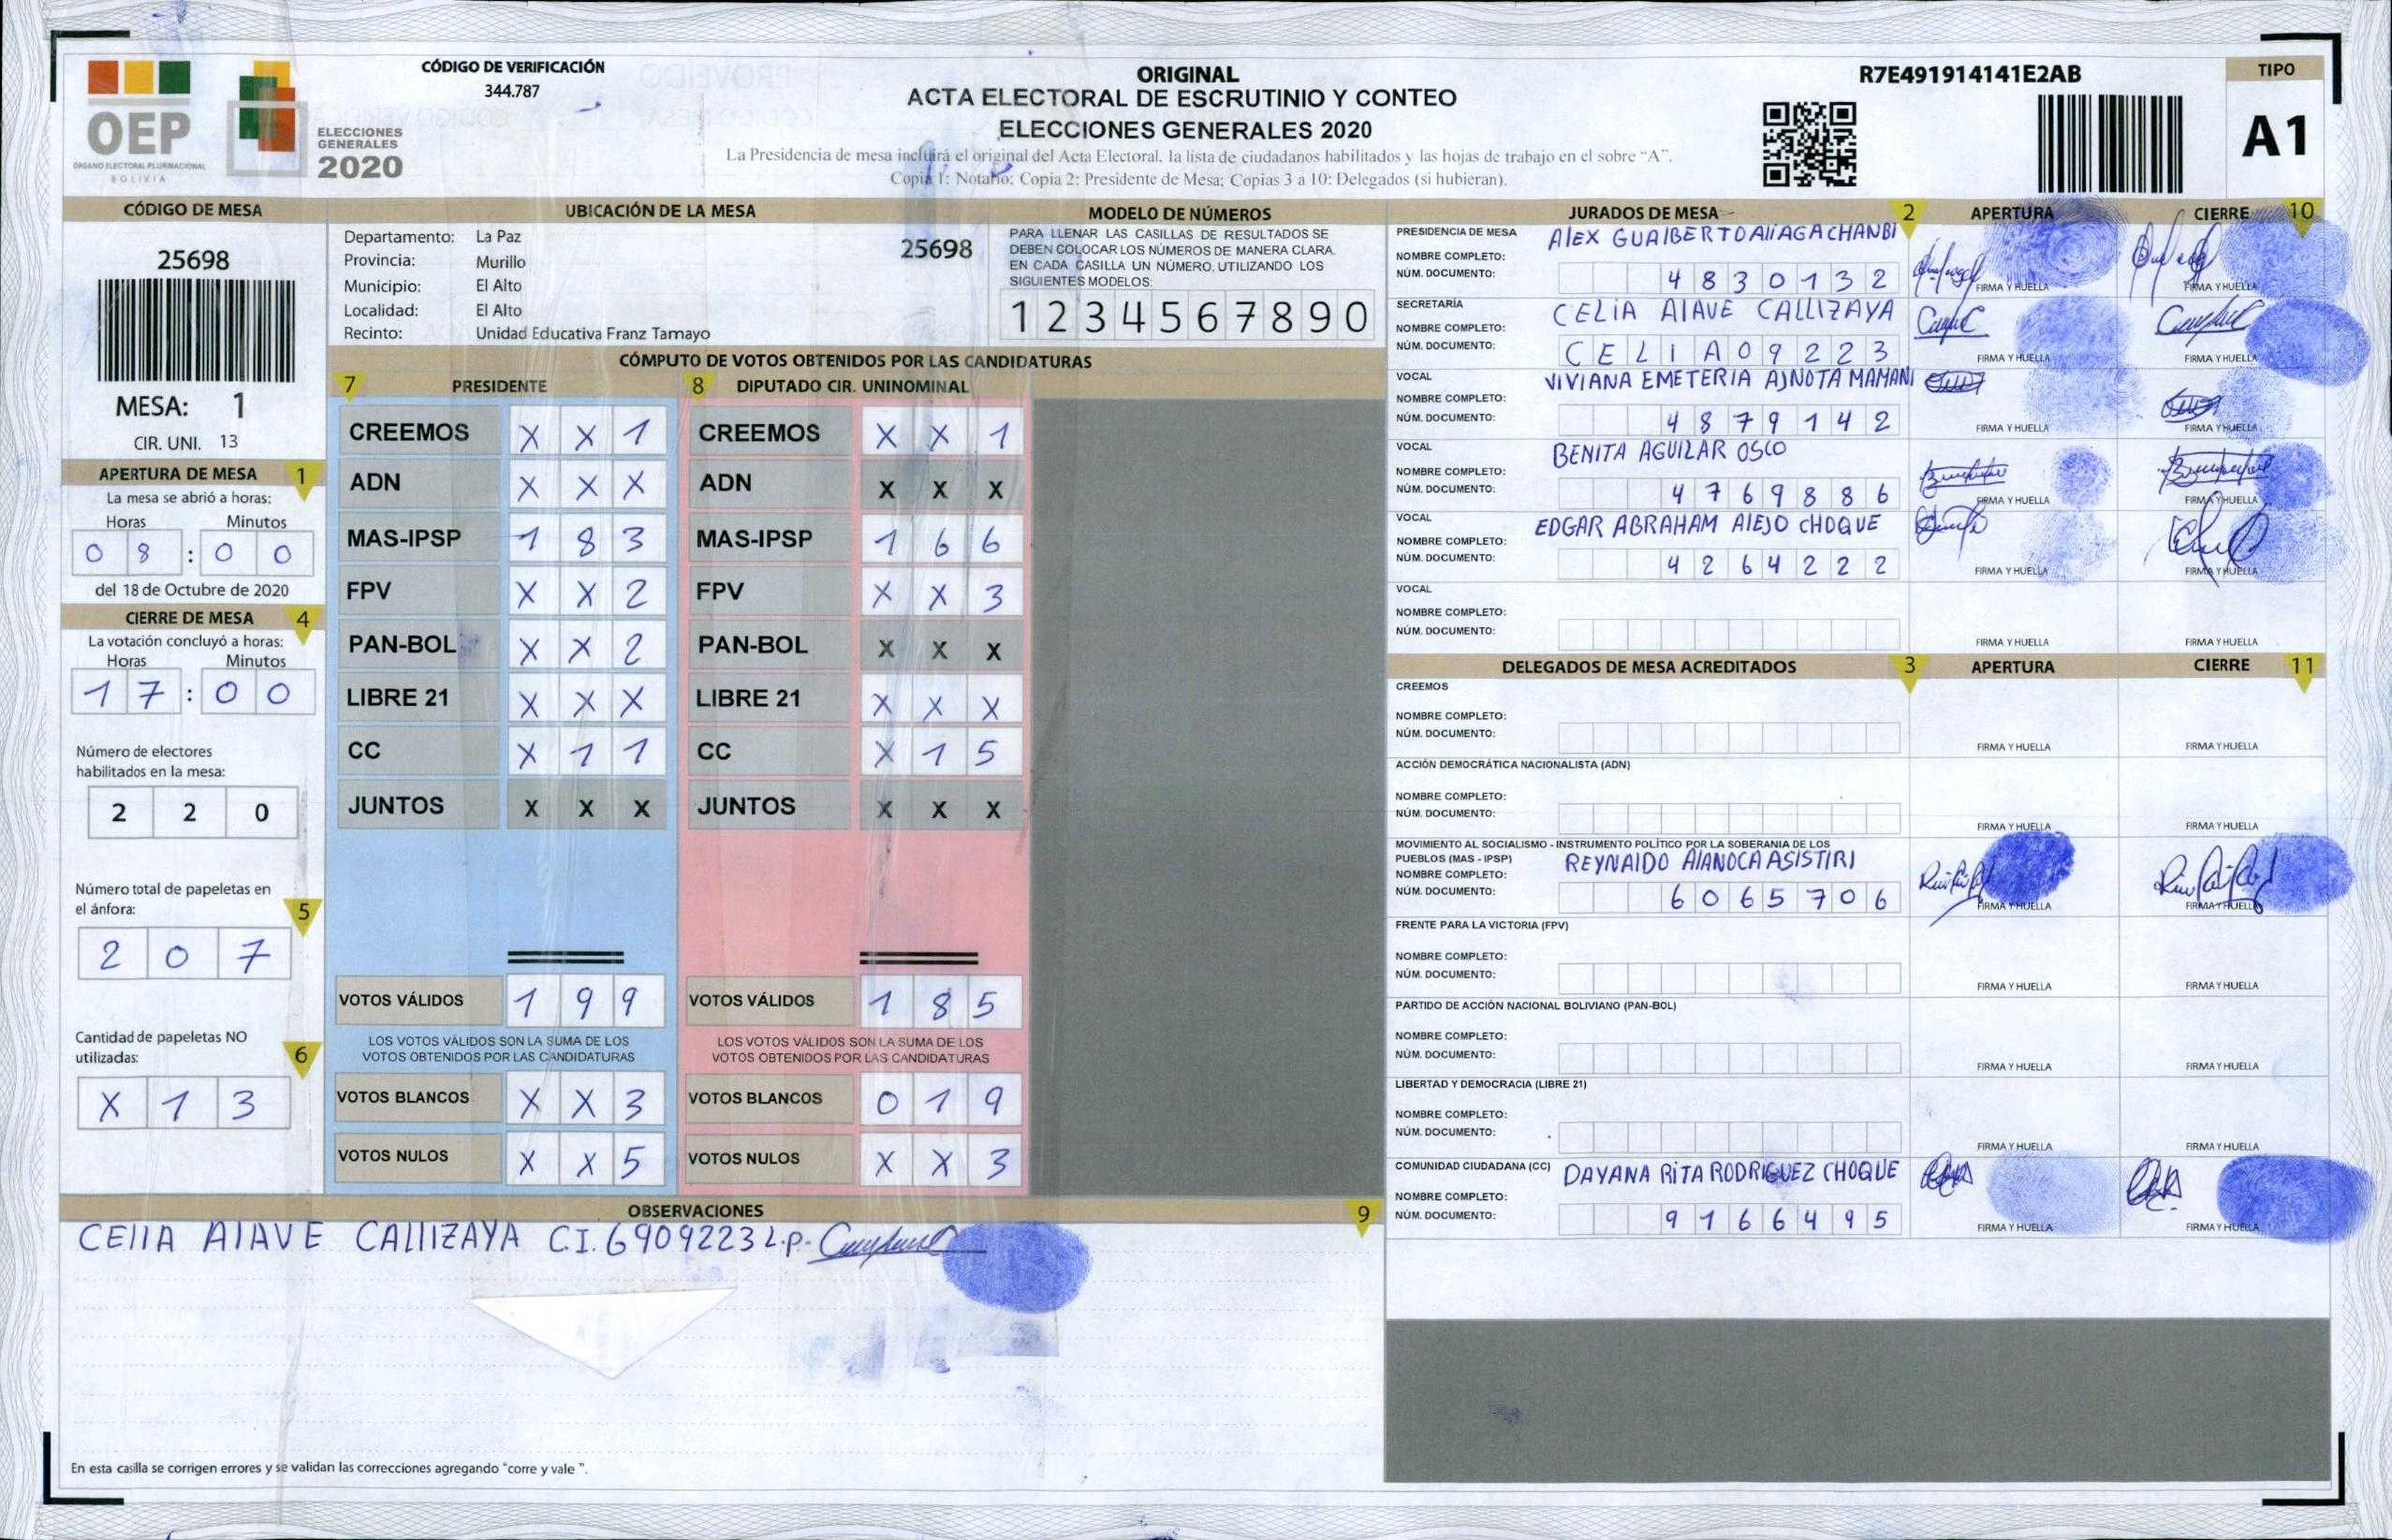 CÓDIGO DE VERIFICACIÓN
344.787
OEP
ÓRGANO ELECTORAL PLURINACIONAL
BOLIVIA
ELECCIONES
GENERALES
2020
ORIGINAL
ACTA ELECTORAL DE ESCRUTINIO Y CONTEO
ELECCIONES GENERALES 2020
La Presidencia de mesa incluirá el original del Acta Electoral, la lista de ciudadanos habilitados y las hojas de trabajo en el sobre "A".
Copia 1: Notario; Copia 2: Presidente de Mesa; Copias 3 a 10: Delegados (si hubieran).
R7E491914141E2AB
TIPO
A1
CÓDIGO DE MESA
25698
MESA: 1
CIR. UNI. 13
APERTURA DE MESA 1
La mesa se abrió a horas:
Horas Minutos
0 8 : 0 0
del 18 de Octubre de 2020
CIERRE DE MESA 4
La votación concluyó a horas:
Horas Minutos
1 7 : 0 0
Número de electores
habilitados en la mesa:
2 2 0
Número total de papeletas en
el ánfora:
5
2 0 7
Cantidad de papeletas NO
utilizadas:
6
X 1 3
UBICACIÓN DE LA MESA
Departamento: La Paz
25698
Provincia: Murillo
Municipio: El Alto
Localidad: El Alto
Recinto: Unidad Educativa Franz Tamayo
MODELO DE NÚMEROS
PARA LLENAR LAS CASILLAS DE RESULTADOS SE
DEBEN COLOCAR LOS NÚMEROS DE MANERA CLARA.
EN CADA CASILLA UN NÚMERO, UTILIZANDO LOS
SIGUIENTES MODELOS:
1 2 3 4 5 6 7 8 9 0
CÓMPUTO DE VOTOS OBTENIDOS POR LAS CANDIDATURAS
7 PRESIDENTE
CREEMOS X X 1
ADN X X X
MAS-IPSP 1 8 3
FPV X X 2
PAN-BOL X X 2
LIBRE 21 X X X
CC X 1 1
JUNTOS X X X
VOTOS VÁLIDOS 1 9 9
LOS VOTOS VÁLIDOS SON LA SUMA DE LOS
VOTOS OBTENIDOS POR LAS CANDIDATURAS
VOTOS BLANCOS X X 3
VOTOS NULOS X X 5
8 DIPUTADO CIR. UNINOMINAL
CREEMOS X X 1
ADN X X X
MAS-IPSP 1 6 6
FPV X X 3
PAN-BOL X X X
LIBRE 21 X X X
CC X 1 5
JUNTOS X X X
VOTOS VÁLIDOS 1 8 5
LOS VOTOS VÁLIDOS SON LA SUMA DE LOS
VOTOS OBTENIDOS POR LAS CANDIDATURAS
VOTOS BLANCOS 0 1 9
VOTOS NULOS X X 3
OBSERVACIONES 9
CEllA AlAVE CAllIZAYA C.I. 6909223 L.P.
En esta casilla se corrigen errores y se validan las correcciones agregando "corre y vale ".
JURADOS DE MESA 2 APERTURA CIERRE 10
PRESIDENCIA DE MESA
NOMBRE COMPLETO: AlEX GUAlBERTO AllAGA CHANBI
NÚM. DOCUMENTO: 4 8 3 0 1 3 2
FIRMA Y HUELLA FIRMA Y HUELLA
SECRETARÍA
NOMBRE COMPLETO: CELIA AlAVE CALLIZAYA
NÚM. DOCUMENTO: C E L I A 0 9 2 2 3
FIRMA Y HUELLA FIRMA Y HUELLA
VOCAL
NOMBRE COMPLETO: VIVIANA EMETERIA AJNOTA MAMANI
NÚM. DOCUMENTO: 4 8 7 9 1 4 2
FIRMA Y HUELLA FIRMA Y HUELLA
VOCAL
NOMBRE COMPLETO: BENITA AGUILAR OSCO
NÚM. DOCUMENTO: 4 7 6 9 8 8 6
FIRMA Y HUELLA FIRMA Y HUELLA
VOCAL
NOMBRE COMPLETO: EDGAR ABRAHAM AlEJO CHOQUE
NÚM. DOCUMENTO: 4 2 6 4 2 2 2
FIRMA Y HUELLA FIRMA Y HUELLA
VOCAL
NOMBRE COMPLETO:
NÚM. DOCUMENTO:
FIRMA Y HUELLA FIRMA Y HUELLA
DELEGADOS DE MESA ACREDITADOS 3 APERTURA CIERRE 11
CREEMOS
NOMBRE COMPLETO:
NÚM. DOCUMENTO:
FIRMA Y HUELLA FIRMA Y HUELLA
ACCIÓN DEMOCRÁTICA NACIONALISTA (ADN)
NOMBRE COMPLETO:
NÚM. DOCUMENTO:
FIRMA Y HUELLA FIRMA Y HUELLA
MOVIMIENTO AL SOCIALISMO - INSTRUMENTO POLÍTICO POR LA SOBERANIA DE LOS
PUEBLOS (MAS - IPSP)
NOMBRE COMPLETO: REYNAlDO AlANOCA ASISTIRI
NÚM. DOCUMENTO: 6 0 6 5 7 0 6
FIRMA Y HUELLA FIRMA Y HUELLA
FRENTE PARA LA VICTORIA (FPV)
NOMBRE COMPLETO:
NÚM. DOCUMENTO:
FIRMA Y HUELLA FIRMA Y HUELLA
PARTIDO DE ACCIÓN NACIONAL BOLIVIANO (PAN-BOL)
NOMBRE COMPLETO:
NÚM. DOCUMENTO:
FIRMA Y HUELLA FIRMA Y HUELLA
LIBERTAD Y DEMOCRACIA (LIBRE 21)
NOMBRE COMPLETO:
NÚM. DOCUMENTO:
FIRMA Y HUELLA FIRMA Y HUELLA
COMUNIDAD CIUDADANA (CC)
NOMBRE COMPLETO: DAYANA RITA RODRIGUEZ CHOQUE
NÚM. DOCUMENTO: 9 1 6 6 4 9 5
FIRMA Y HUELLA FIRMA Y HUELLA